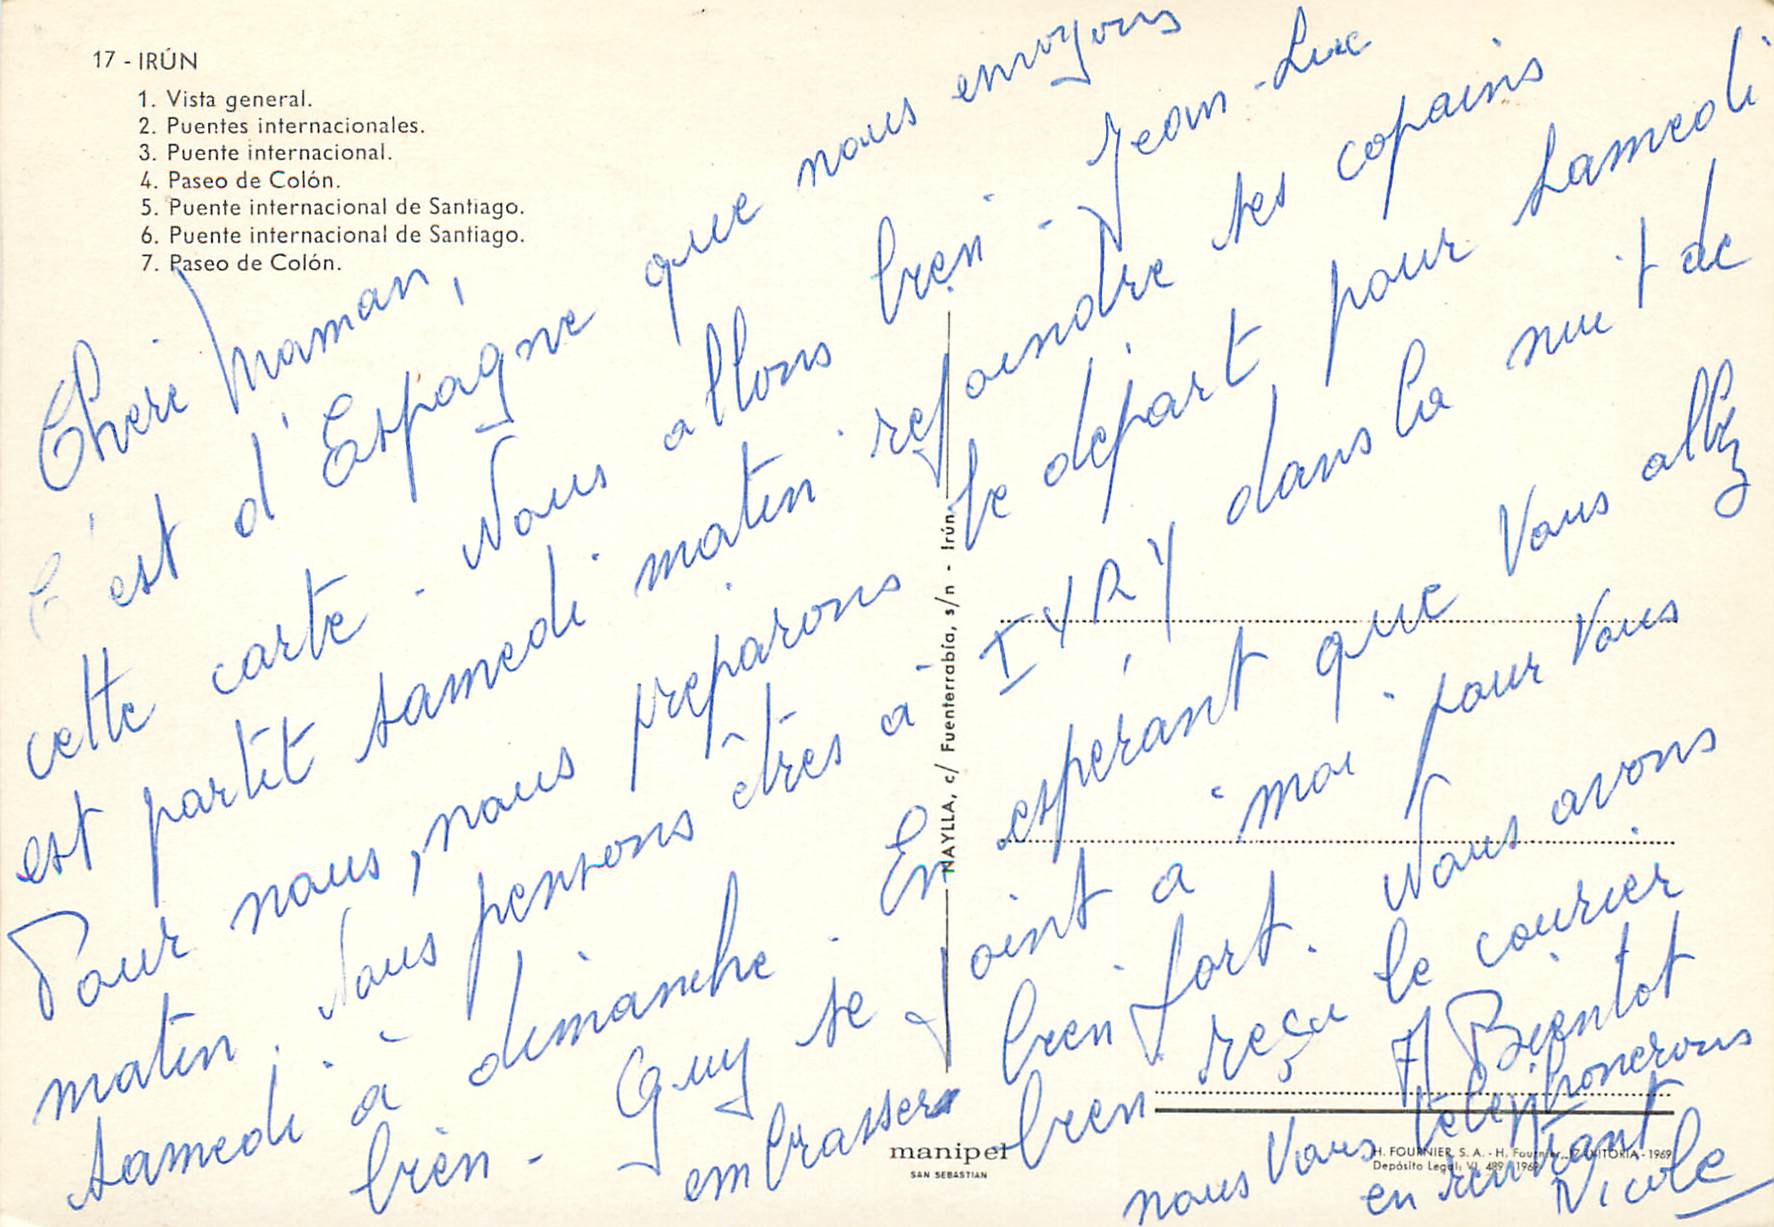 17 - IRÚN
1. Vista general.
2. Puentes internacionales.
3. Puente internacional.
4. Paseo de Colón.
5. Puente internacional de Santiago.
6. Puente internacional de Santiago.
7. Paseo de Colón.
Chère Maman,
C'est d'Espagne que nous envoyons
cette carte. Nous allons bien. Jean-Luc
est partit samedi matin rejoindre ses copains
Pour nous, nous préparons le départ pour samedi
matin. Nous pensons êtres à IVRY dans la nuit de
samedi à dimanche. En espérant que vous allez
bien - Guy se joint a moi pour vous
embrasser bien fort. Nous avons
bien reçu le courier
A Bientot
nous vous téléphonerons
en rentrant
Nicole
NAYLLA, c/ Fuenterrabía, s/n - Irún
manipel
SAN SEBASTIAN
H. FOURNIER, S. A. - H. Fournier, - VITORIA - 1969
Depósito Legal: VI. 489 - 1969